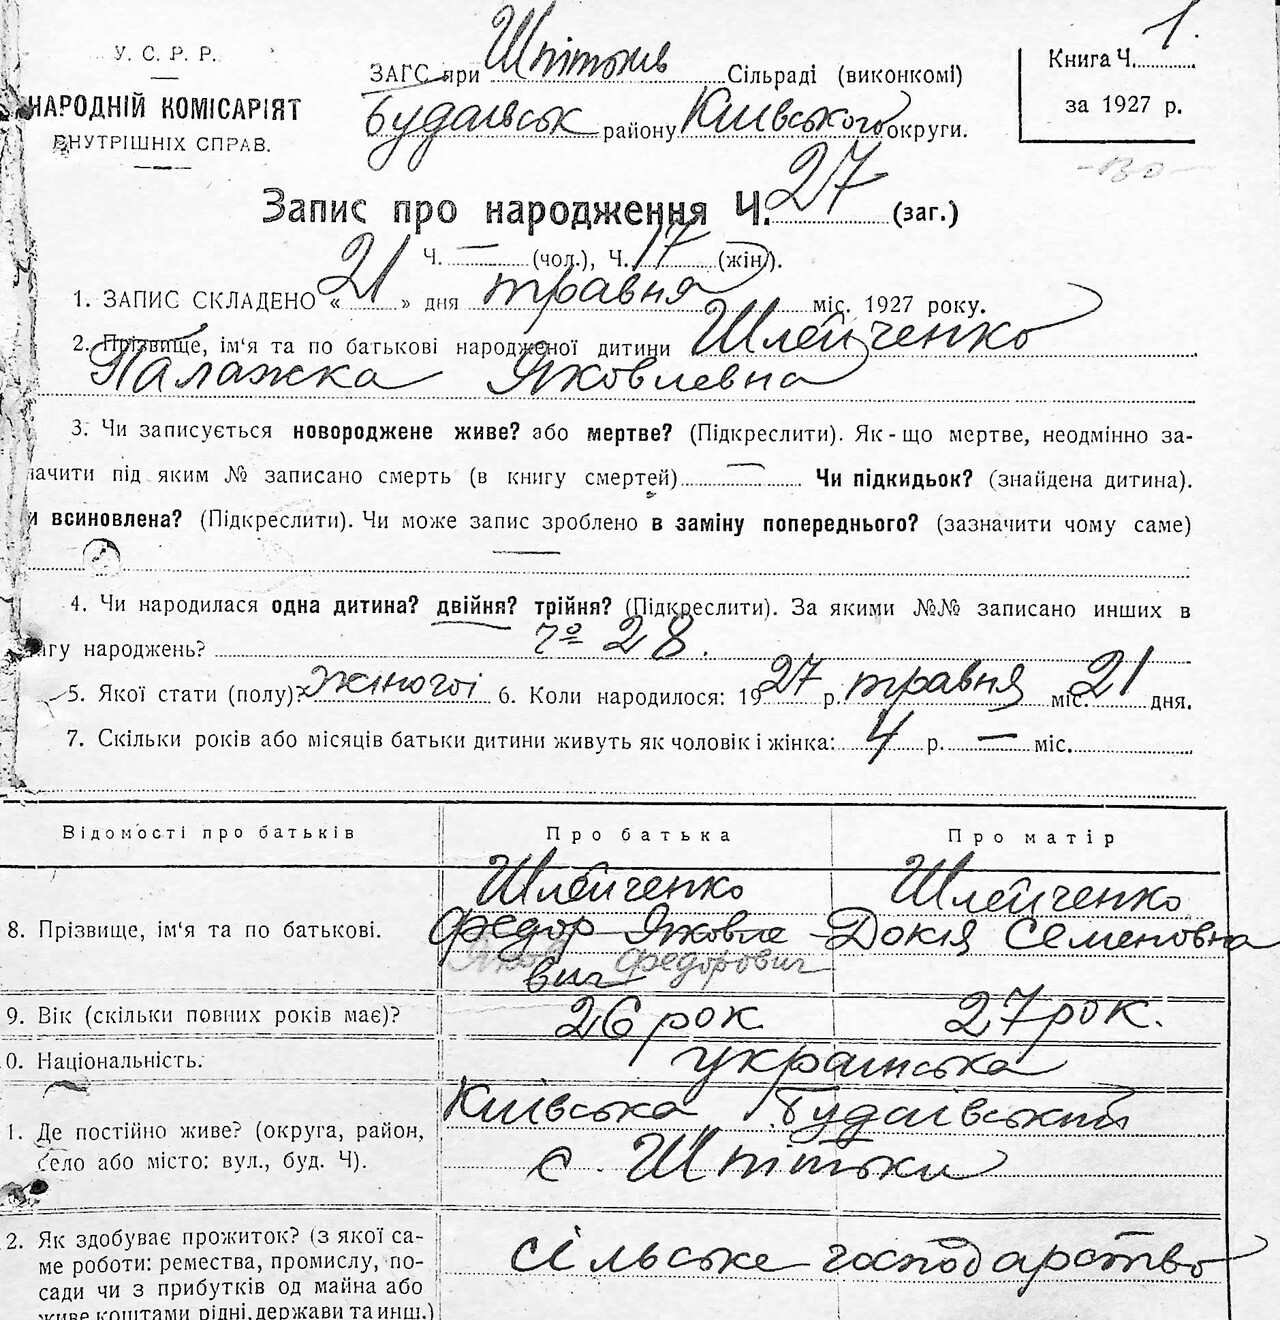 1.
У. С. Р. Р.
НАРОДНІЙ КОМІСАРІЯТ
ВНУТРІШНІХ СПРАВ.
ЗАГС при Шпітьків Сільраді (виконкомі)
Будаївськ району Київського округи.
Книга Ч.
за 1927 р.
Запис про народження Ч. 27 (заг.)
Ч. — (чол.), Ч. 17 (жін.).
1. ЗАПИС СКЛАДЕНО « 21 » дня травня міс. 1927 року.
2. Прізвище, ім‘я та по батькові народженої дитини Шлейченко
Палажка Яковлевна
3. Чи записується новороджене живе? або мертве? (Підкреслити). Як-що мертве, неодмінно за-
ачити під яким № записано смерть (в книгу смертей) — Чи підкидьок? (знайдена дитина).
и всиновлена? (Підкреслити). Чи може запис зроблено в заміну попереднього? (зазначити чому саме)
—
4. Чи народилася одна дитина? двійня? трійня? (Підкреслити). За якими №№ записано инших в
игу народжень? 28.
5. Якої стати (полу)? жіночої 6. Коли народилося: 1927 р. травня міс. 21 дня.
7. Скільки років або місяців батьки дитини живуть як чоловік і жінка: 4 р. — міс.
Відомості про батьків Про батька Про матір
8. Прізвище, ім‘я та по батькові. Шлейченко Шлейченко
Федор Яковле Докія Семеновна
вич Яков Федорович
9. Вік (скільки повних років має)? 26 рок 27 рок.
0. Національність. українська
1. Де постійно живе? (округа, район, Київська Будаївський
село або місто: вул., буд. Ч). с. Шпітьки
2. Як здобуває прожиток? (з якої са- сільське господарство
ме роботи: ремества, промислу, по-
сади чи з прибутків од майна або
живе коштами рідні, держави та инш.)